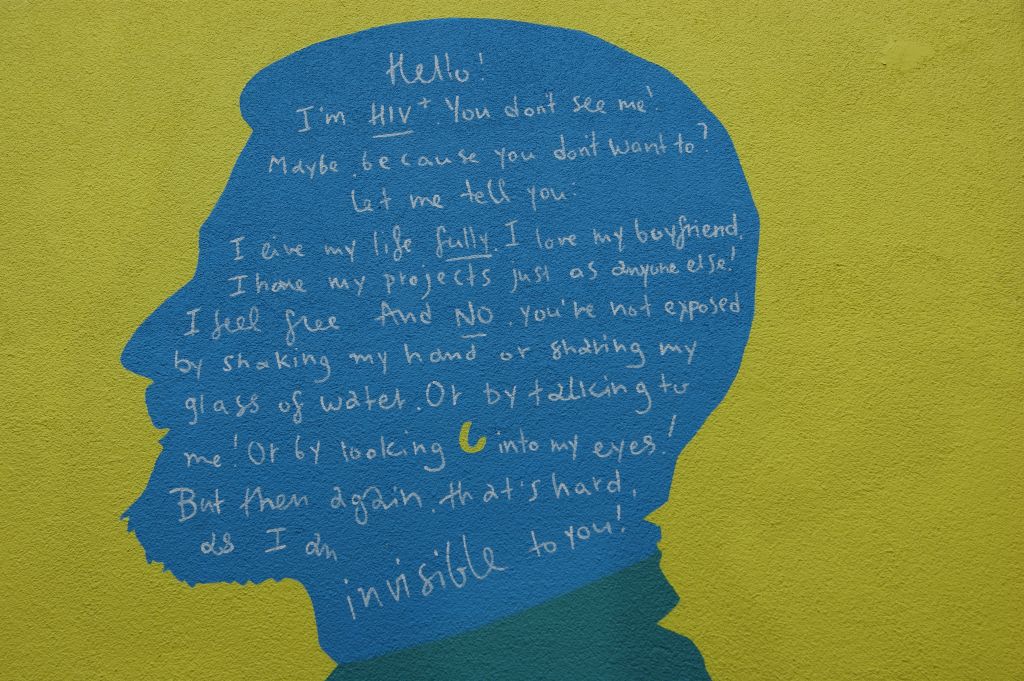 Hello!
I'm HIV+. You don't see me!
Maybe because you don't want to?
Let me tell you:
I live my life fully. I love my boyfriend.
I have my projects just as anyone else!
I feel free And NO. you're not exposed
by shaking my hand or sharing my
glass of water. Or by talking to
me! Or by looking into my eyes!
But then again, that's hard,
as I am
invisible to you!